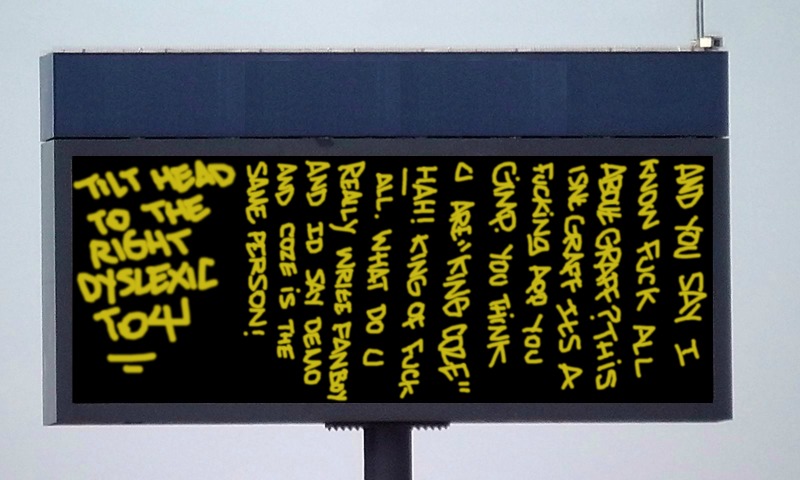 TILT HEAD
TO THE
RIGHT
DYSLEXIC
TOY
AND YOU SAY I
KNOW FUCK ALL
ABOUT GRAFF? THIS
ISNT GRAFF ITS A
FUCKING APP YOU
GIMP. YOU THINK
U ARE "KING COZE"
HAH! KING OF FUCK
ALL. WHAT DO U
REALLY WRITE FANBOY
AND ID SAY DEMO
AND COZE IS THE
SAME PERSON!